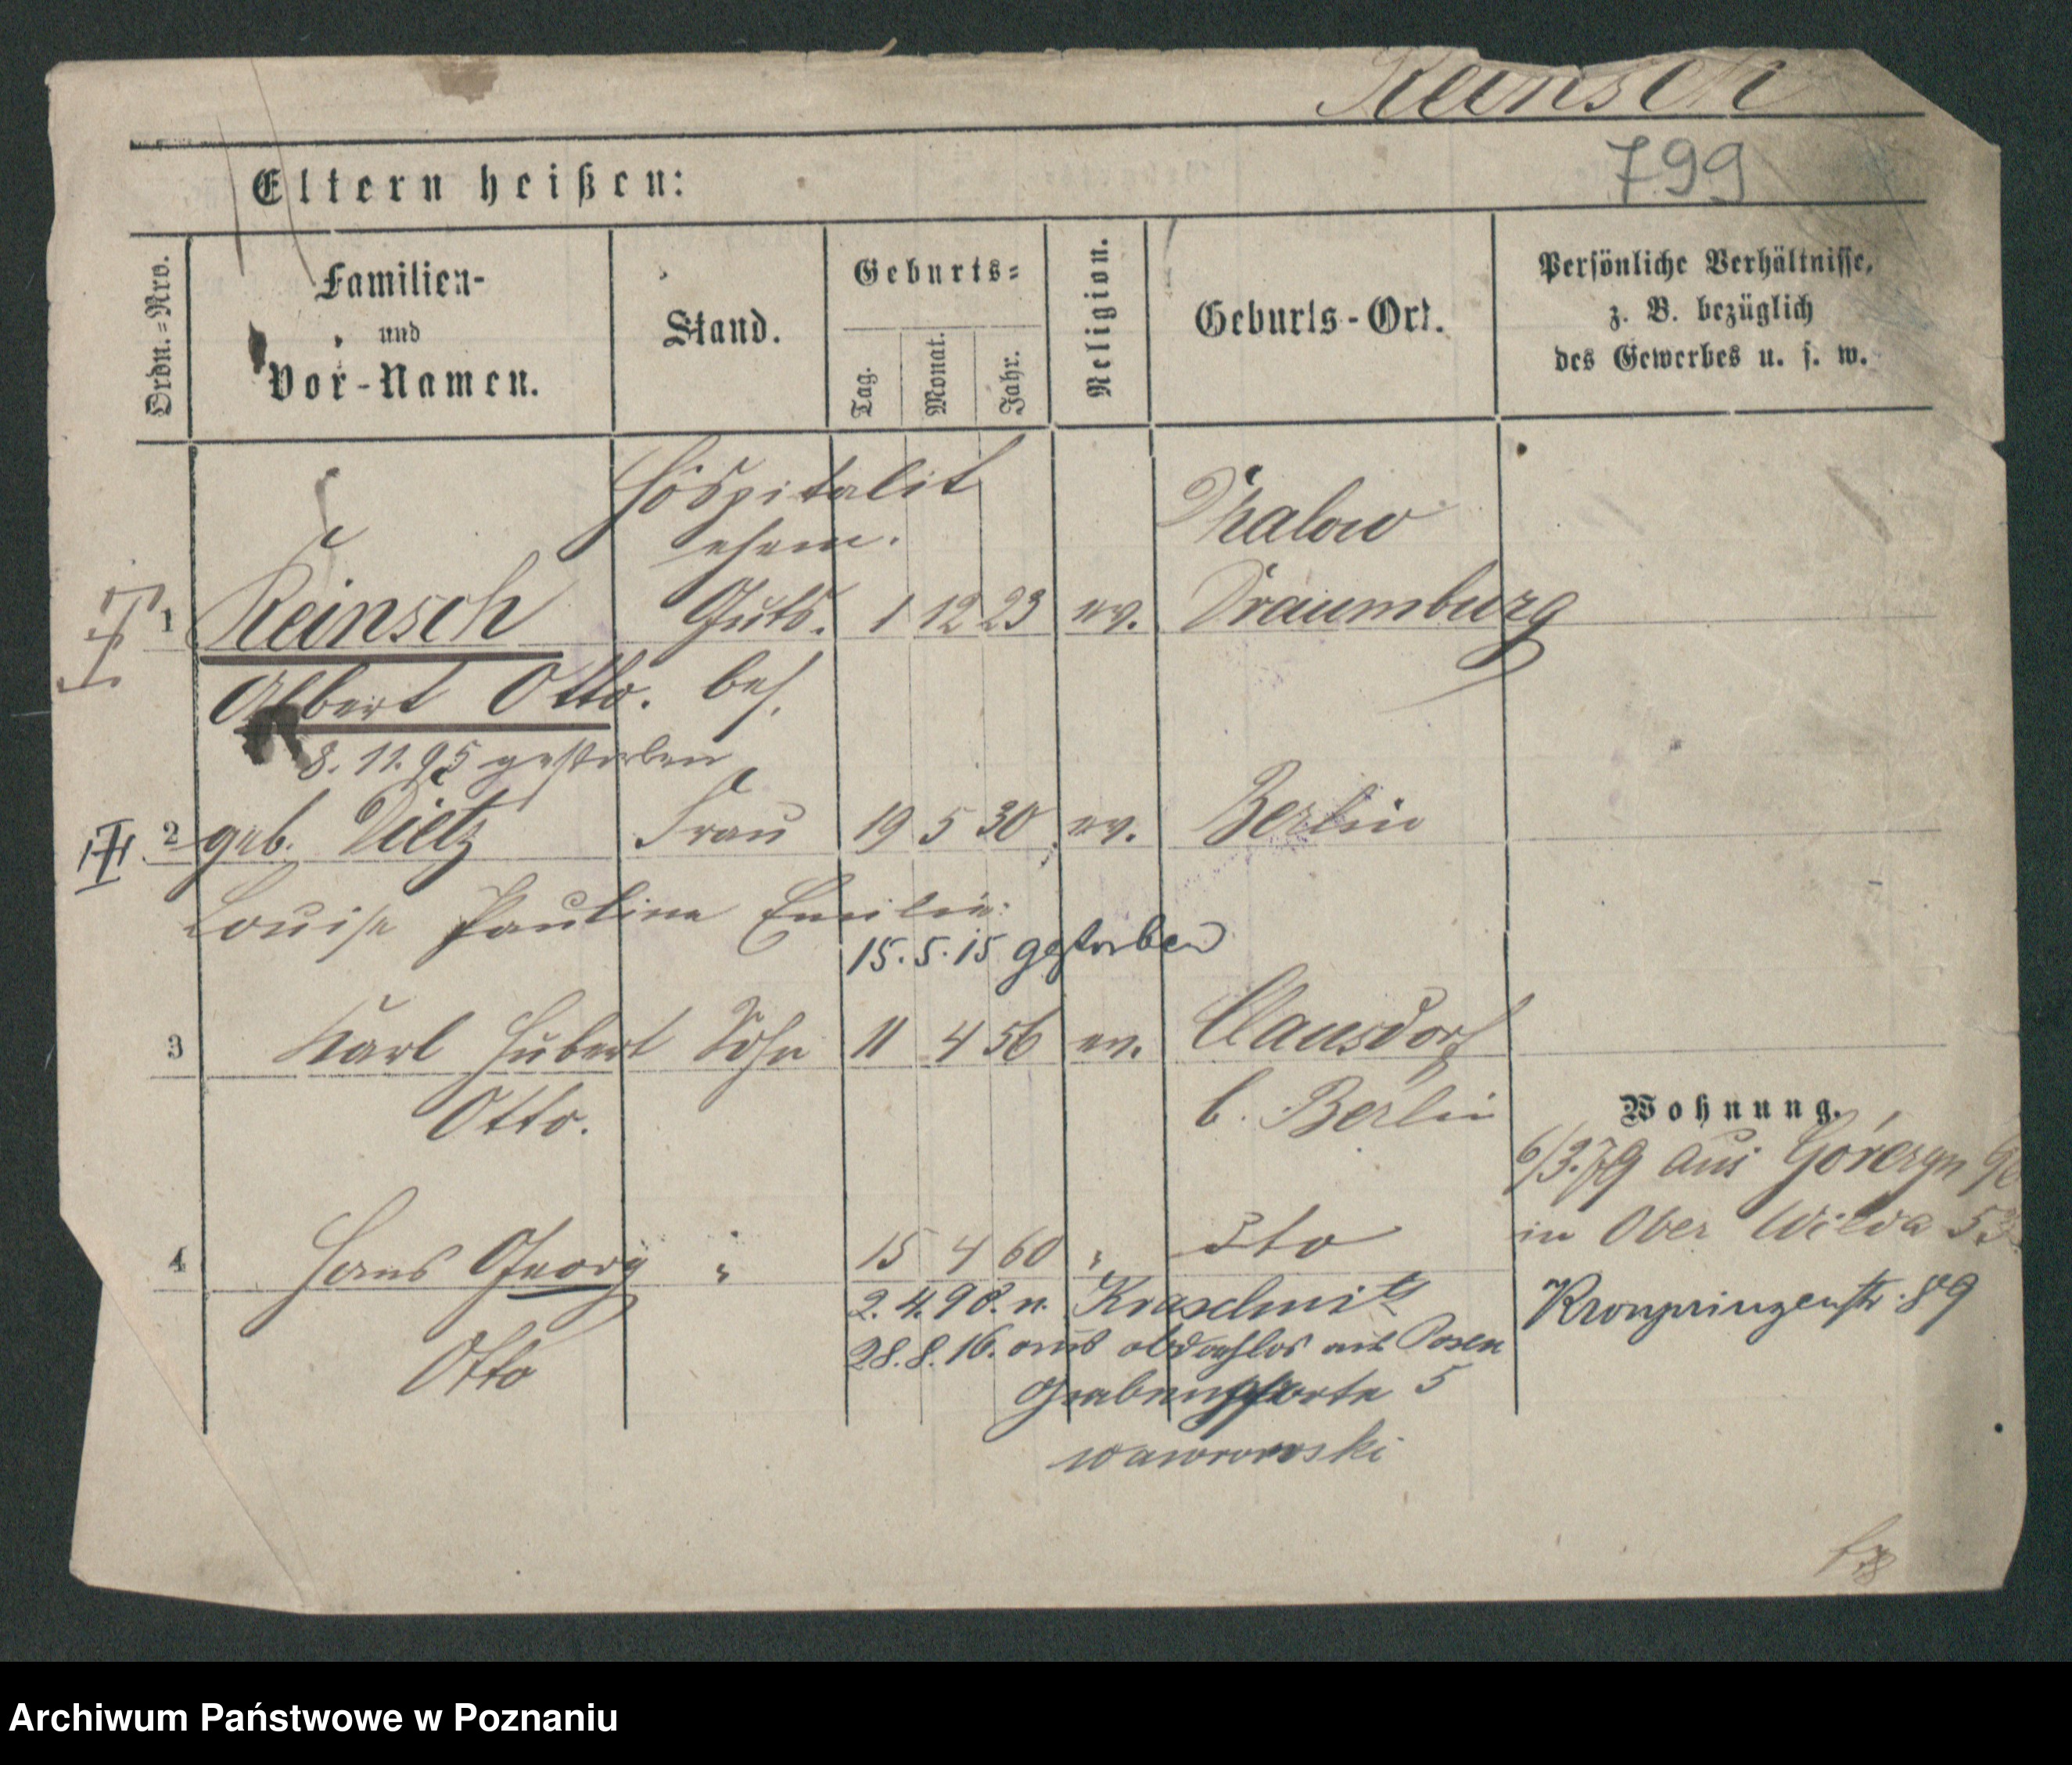 Reinsch
799
Eltern heißen:
Ordn.-Nro.
Familien-
und
Vor-Namen.
Stand.
Geburts-
Tag.
Monat.
Jahr.
Religion.
Geburts-Ort.
Persönliche Verhältnisse,
z. B. bezüglich
des Gewerbes u. s. w.
Hospitalit
ehem.
1 Reinsch Guts. 1 12 23 ev. Draumburg
Albert Otto. bes.
8.11.95 gestorben
2 geb. Dietz Frau 19 5 30 ev. Berlin
Louise Pauline Emilie
15.5.15 gestorben
3 Karl Hubert Sohn 11 4 56 ev. Clausdorf
Otto. b. Berlin
Wohnung.
6/3.79 aus Górczyn
in Ober Wilda
4 Hans Georg " 15 4 60 " dto
Otto
2.4.98. n. Kraschnitz
Kronprinzenstr. 89
28.8.16. obdachlos Posen
Grabenpforte 5
Waworowski